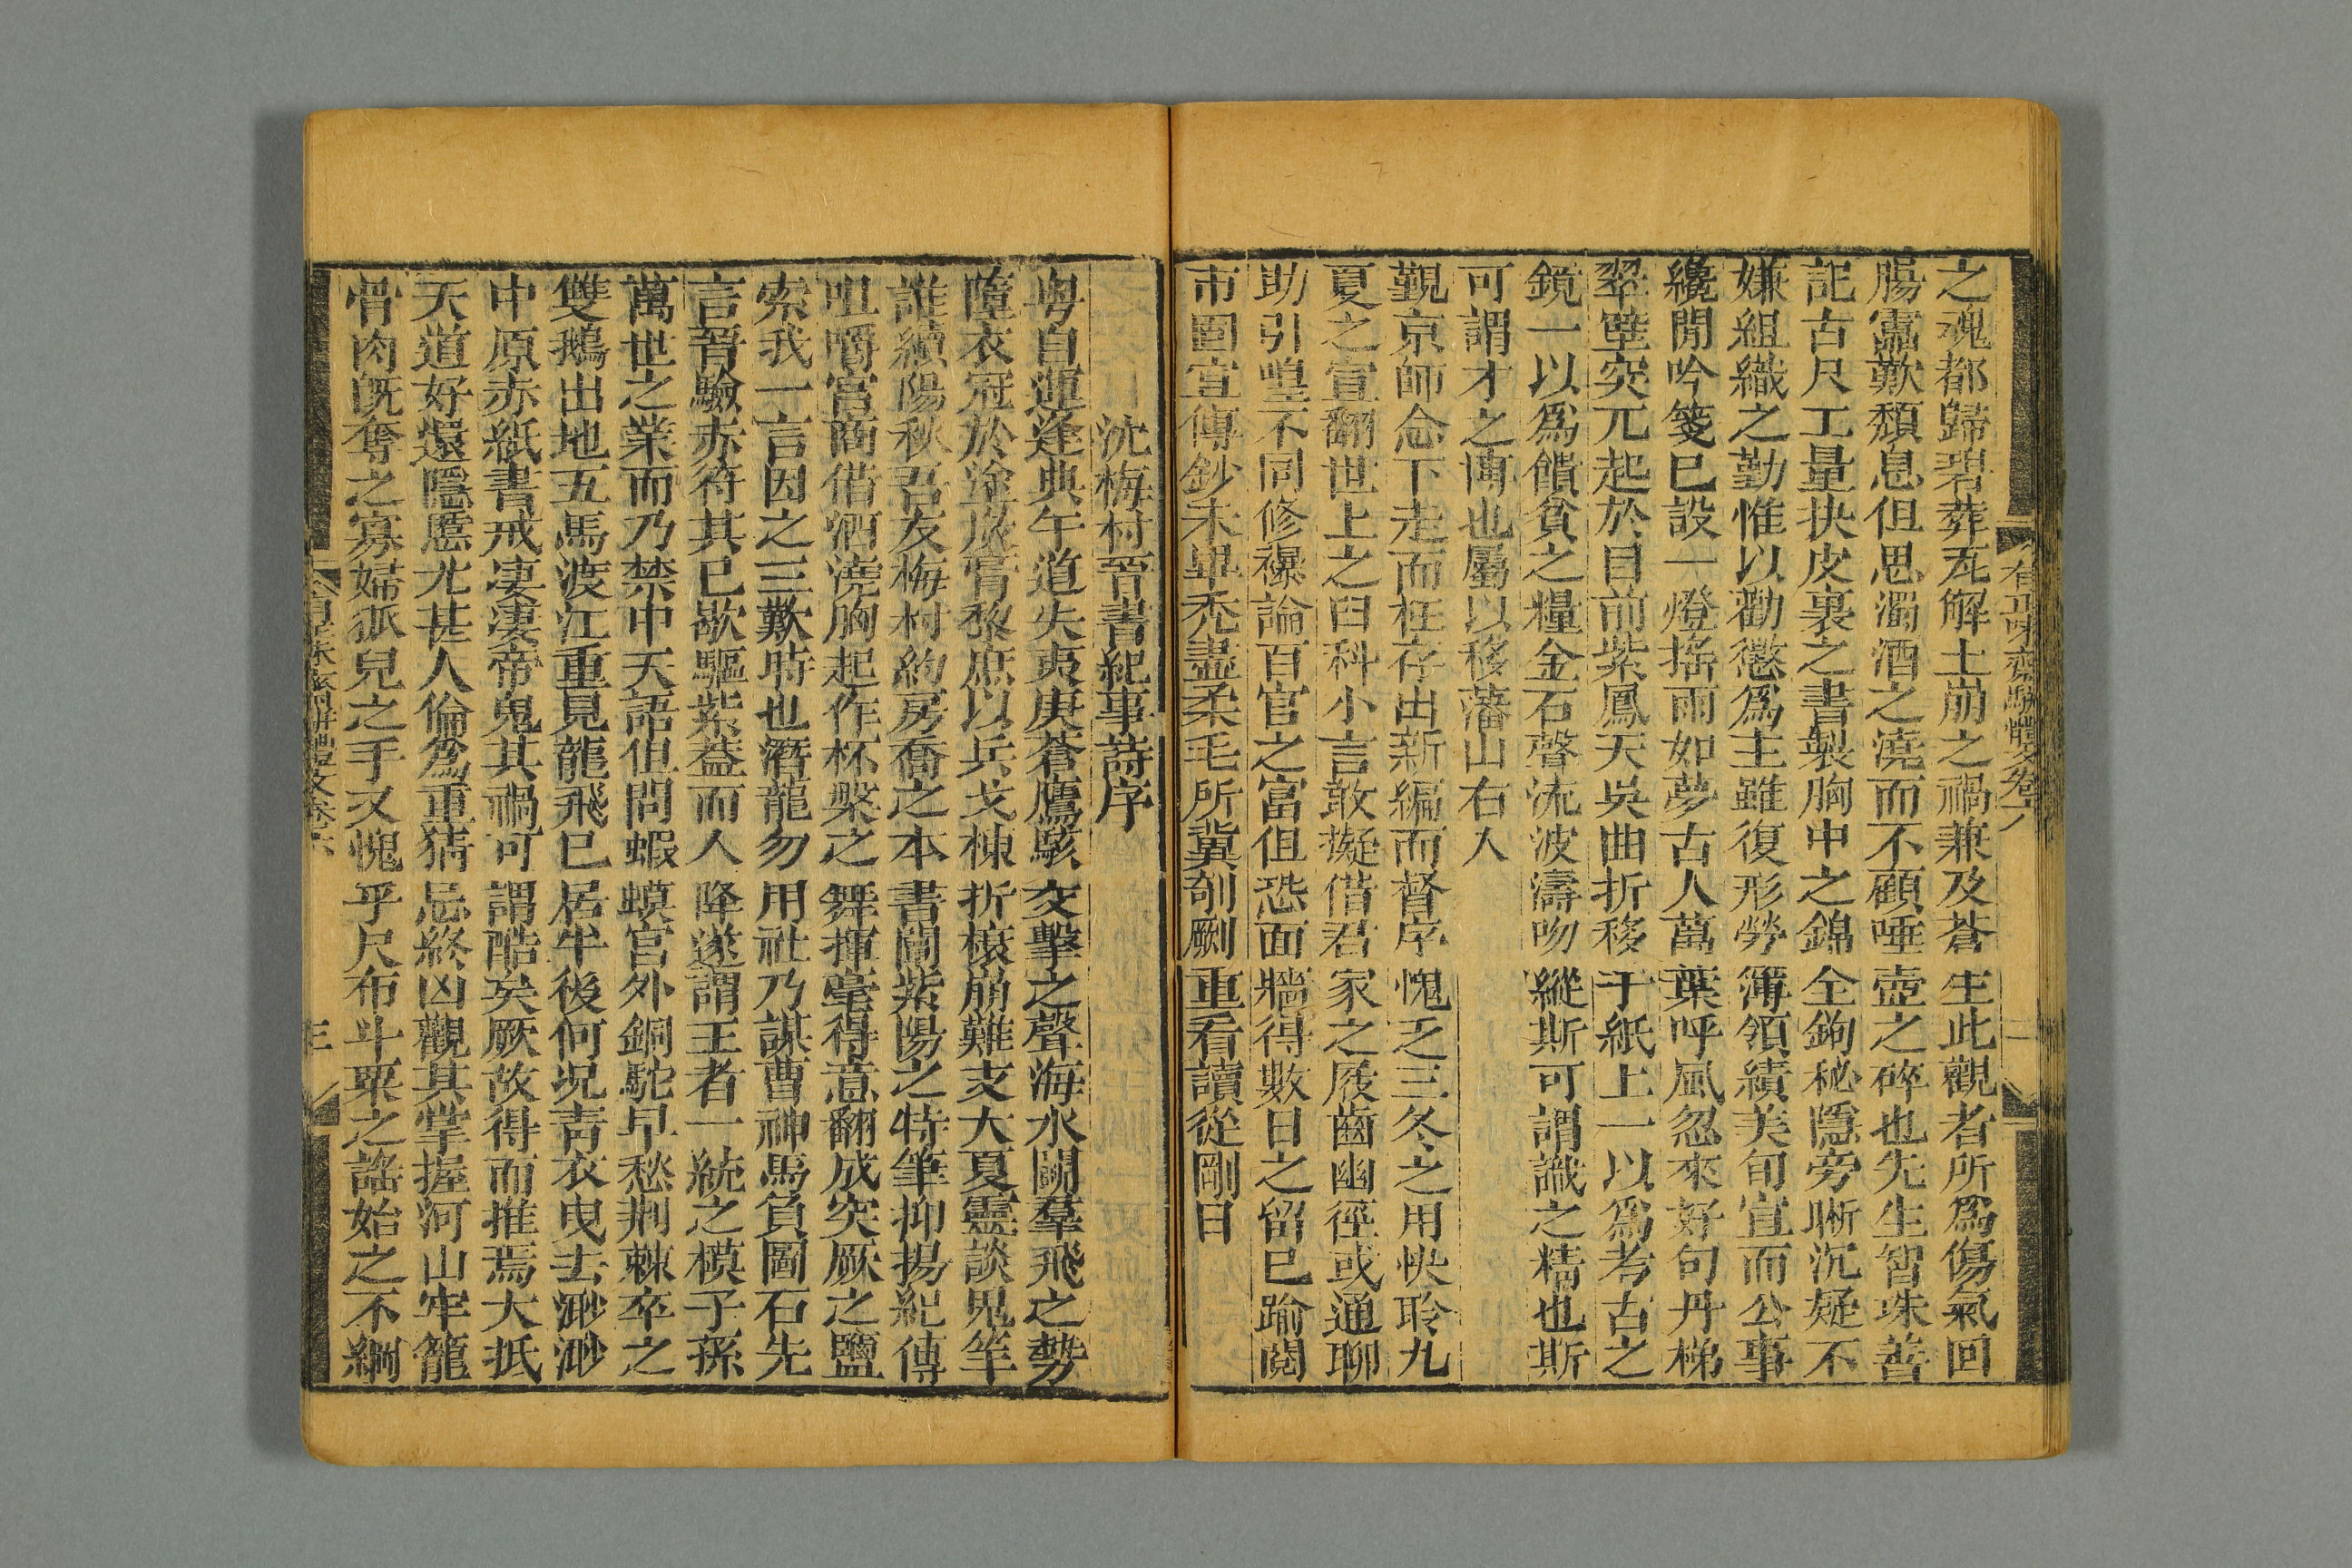 有正味齋駢體文卷六
之魂都歸碧葬瓦解土崩之禍兼及蒼生此觀者所為傷氣回
腸霣歎頹息但思濁酒之澆而不顧唾壺之碎也先生智珠善
記古尺工量抉皮裏之書製胸中之錦全鉤秘隱旁晰沉疑不
嫌組織之勤惟以勸懲為主雖復形勞簿領績美旬宣而公事
纔閒吟箋已設一燈搖雨如夢古人萬葉呼風忽來好句丹梯
翠壁突兀起於目前紫鳳天吳曲折移于紙上一以為考古之
鏡一以為饋貧之糧金石聲流波濤吻縱斯可謂識之精也斯
可謂才之博也屬以移藩山右入
覲京師念下走而枉存出新編而督序愧乏三冬之用快聆九
夏之宣翻世上之臼科小言敢擬借君家之屐齒幽徑或通聊
助引喤不同修禩論百官之富但恐面牆得數日之留已踰閱
市圖宣傳鈔未畢禿盡柔毛所冀剞劂重看讀從剛日
沈梅村晉書紀事詩序
粵自運逢典午道失夷庚蒼鷹駭交擊之聲海水鬭羣飛之勢
墮衣冠於塗炭膏黎庶以兵戈棟折榱崩難支大夏靈談鬼笑
誰續陽秋吾友梅村約房喬之本書闡紫陽之特筆抑揚紀傳
咀嚼宮商借酒澆胸起作杯槃之舞揮毫得意翻成突厥之鹽
索我一言因之三歎時也潛龍勿用社乃謀曹神馬負圖石先
言晉驗赤符其已歇驅紫蓋而人降遂謂王者一統之模子孫
萬世之業而乃禁中天語但問蝦蟆宮外銅駝早愁荆棘卒之
雙鵝出地五馬渡江重見龍飛已居牛後何況青衣曳去渺渺
中原赤紙書戒淒淒帝鬼其禍可謂酷矣厥故得而推焉大抵
天道好還隱慝尤甚人倫為重猜忌終凶觀其掌握河山牢籠
骨肉旣奪之寡婦孤兒之手又愧乎尺布斗粟之謠始之不綱
有正味齋駢體文卷六
三